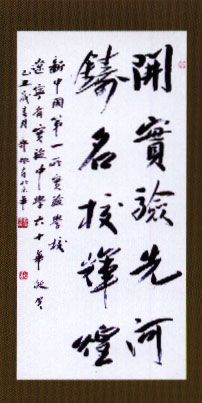 開實驗先河
鑄名校輝煌
新中國第一所實驗學校
遼寧省實驗中學六十華誕賀
己丑歲春月